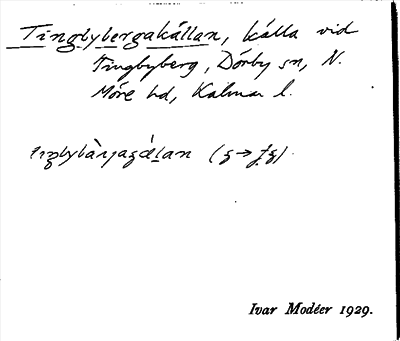 Tingbybergakällan, källa vid
Tingbyberg, Dörby sn, N.
Möre hd, Kalmar l.
Ivar Modéer 1929.